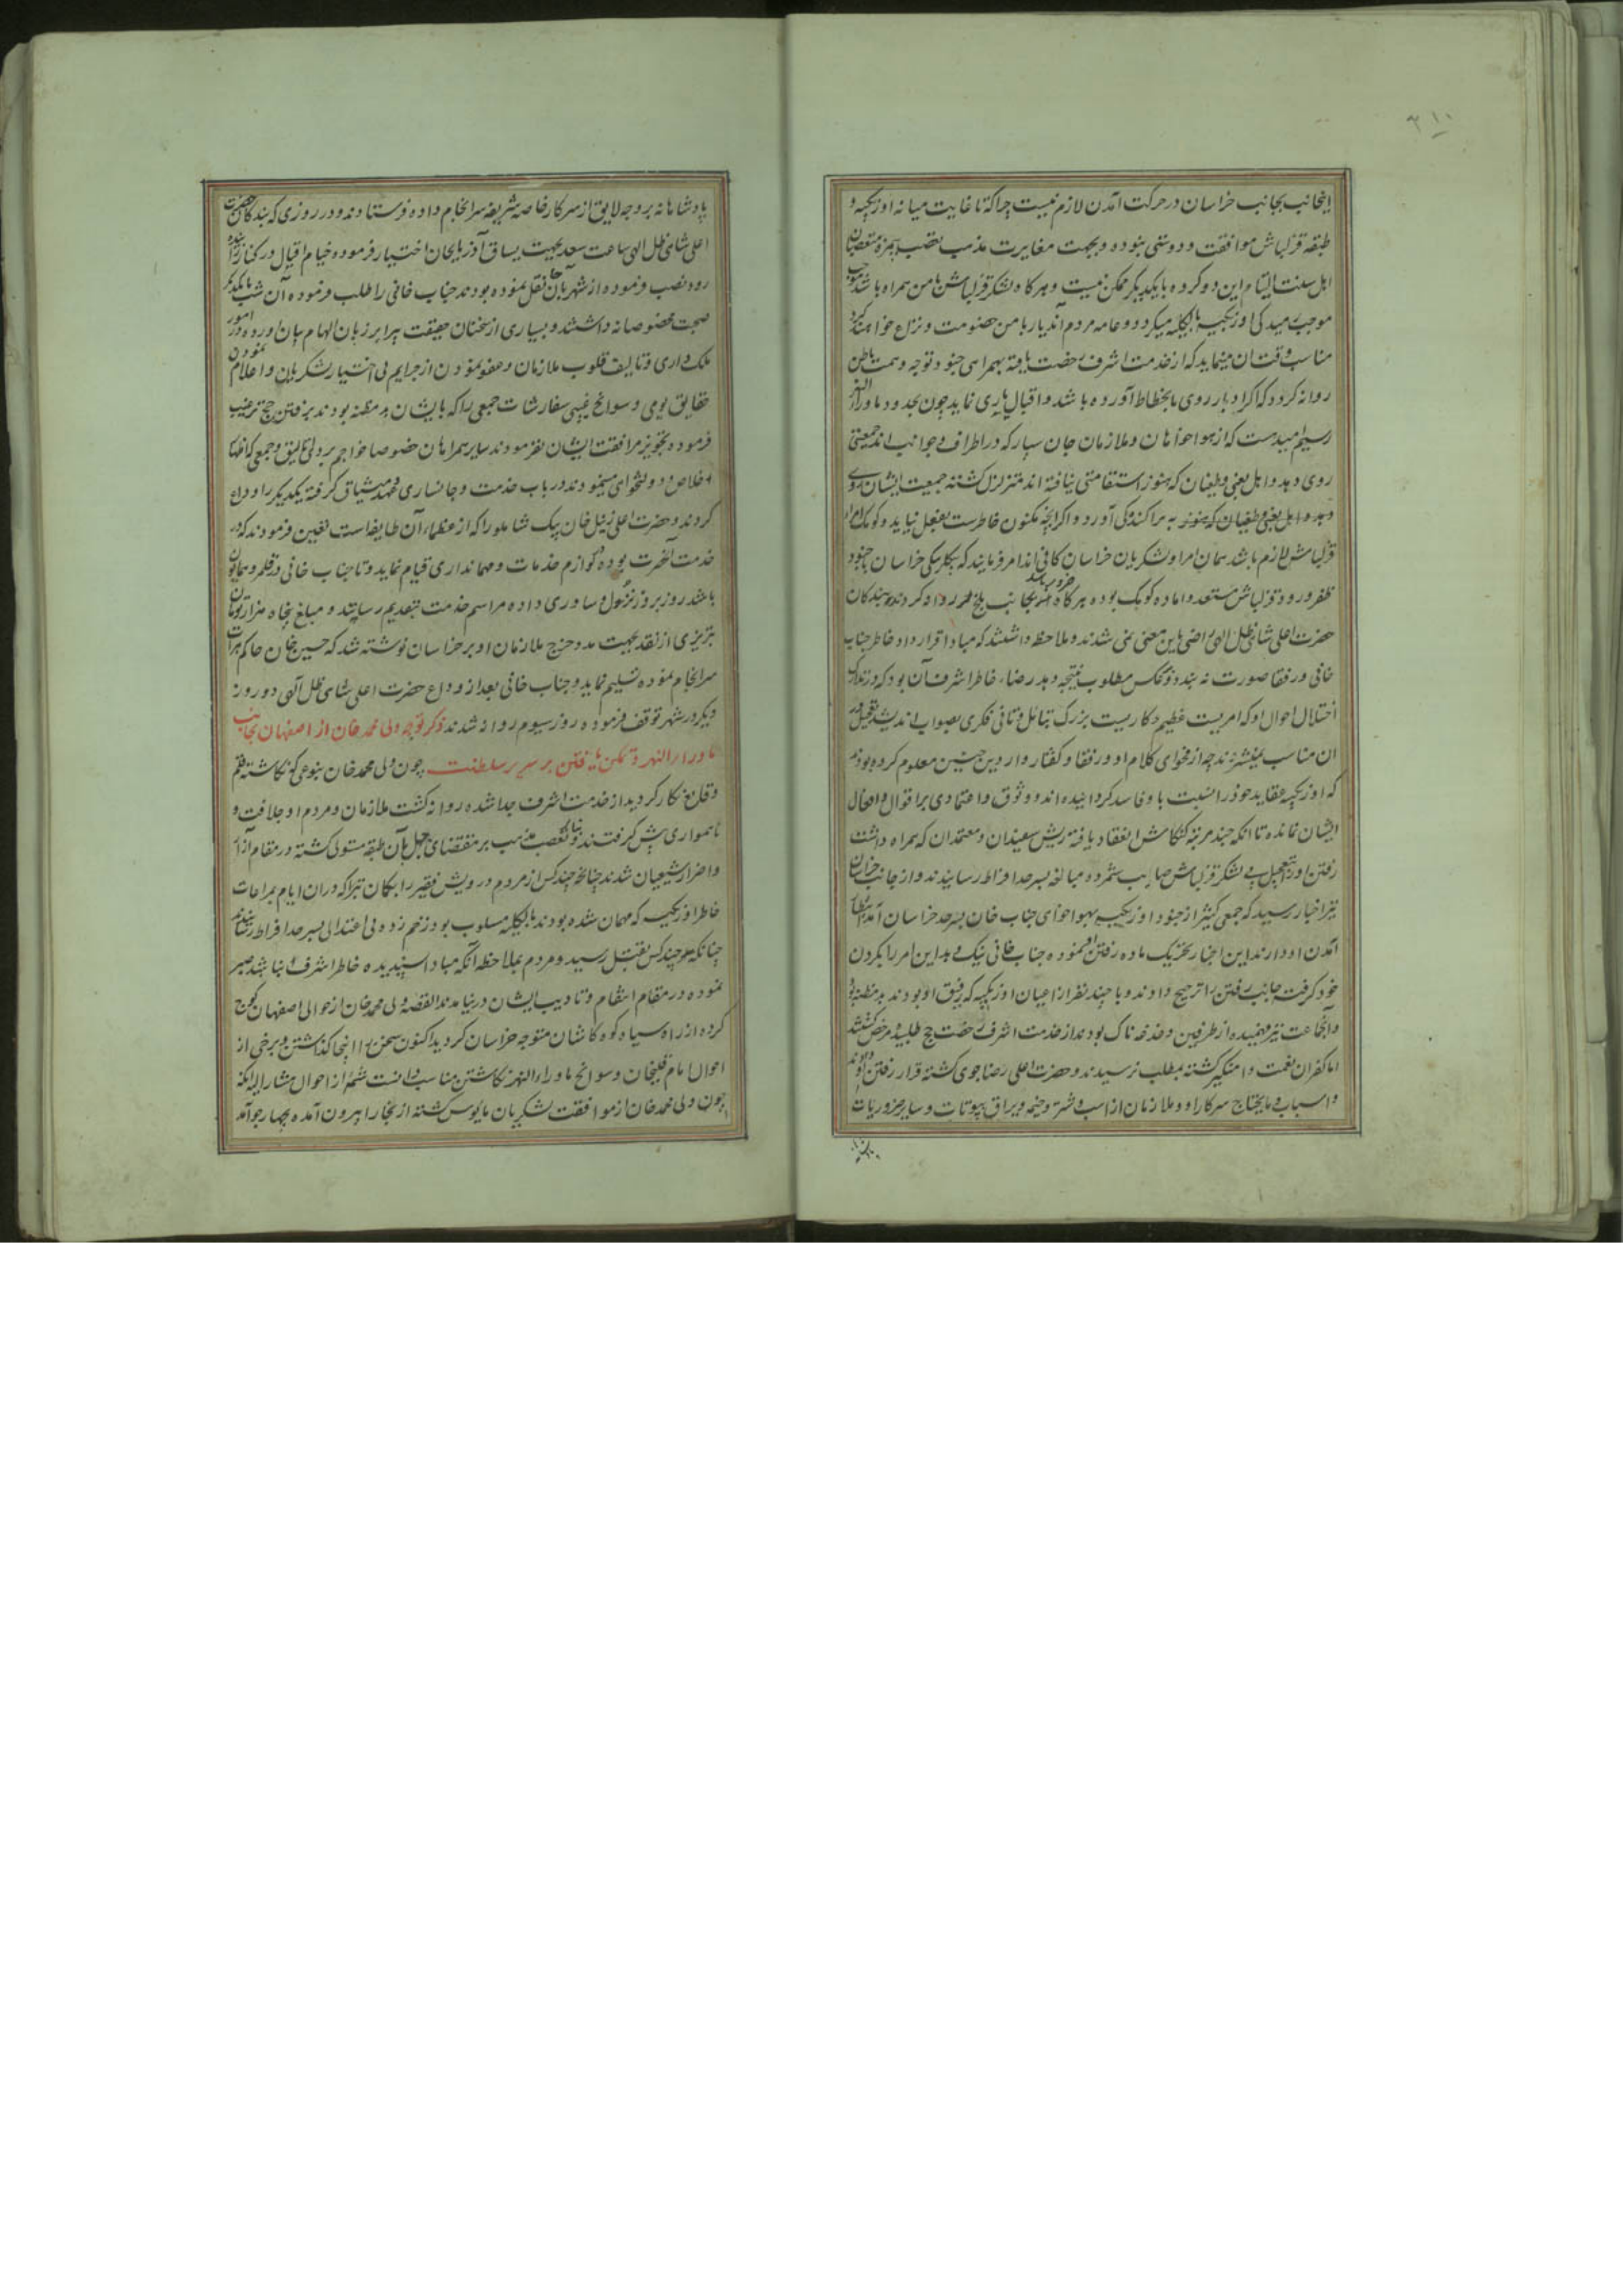 ۳۱۰
اینجانب بجانب خراسان در حرکت آمدن لازم نیست چرا که تا غایت میانه اوزبکیه و
طبقه قزلباش موافقت و دوستی نبوده و بجهت مغایرت مذهب تعصب
اهل سنت التیام این دو گروه با یکدیگر ممکن نیست و هرگاه لشکر قزلباش با من همراه باشد موجب
موجب رمیدگی اوزبکیه بالکلیه میگردد و عامه مردم آندیار با من خصومت و نزاع خواهند کرد
مناسب وقت آن مینماید که از خدمت اشرف رخصت یافته بهمراهی جنود توجه و همت باطن
روانه گردد که اگر ادبار روی بانحطاط آورده باشد و اقبال یاری نماید چون بحدود ماوراءالنهر
رسیم امیدست که از هواخواهان و ملازمان جان سپار که در اطراف و جوانب اند جمعیتی
روی دهد و اهل بغی و طغیان که هنوز استقامتی نیافته اند متزلزل گشته جمعیت ایشان روی
دهد و اهل بغی و طغیان که هنوز به پراکندگی آورد و اگر آنچه مکنون خاطرست بفعل نیاید و کومک امراء
قزلباش لازم باشد همان امرا و لشکریان خراسان کافی اند امر فرمایند که بیگلربیگی خراسان با جنود
ظفر ورود قزلباش مستعد و آماده کومک بوده هرگاه ضرور باشد بجانب بلخ گردند بندگان
حضرت اعلی شاهی ظل الهی راضی باین معنی نمی شدند و ملاحظه داشتند که مبادا قرارداد خاطر جناب
خانی و رفقا صورت نه بندد و عکس مطلوب نتیجه دهد رضاء خاطر اشرف آن بود که در تدارک
اختلال احوال او که امریست عظیم و کاریست بزرگ بتامل و تانی فکری بصواب اندیشد تعجیل در
آن مناسب نمیشمردند چه از فحوای کلام او و رفقا و گفتار واردین چنین معلوم کرده بودند
که اوزبکیه عقاید خود را نسبت باو فاسد گردانیده اند و وثوق و اعتمادی بر اقوال و افعال
ایشان نمانده تا آنکه چند مرتبه کنکاش انعقاد یافته ریش سفیدان و معتمدان که همراه داشت
رفتن او را بتعجیل بی لشکر قزلباش صایب شمرده مبالغه بسرحد افراط رسانیدند و از جانب خراسان
نیز اخبار رسید که جمعی کثیر از جنود اوزبکیه بهواخواهی جناب خان بسرحد خراسان آمده انتظار
آمدن او دارند این اخبار تحریک ماده رفتن او نموده جناب خانی نیک و بد این امر را بگردن
خود گرفته جانب رفتن را ترجیح دادند و با چند نفر از اعیان اوزبکیه که رفیق او بودند بد مظنه بود
و آنجماعت نیز فهمیده از طرفین دغدغه ناک بودند از خدمت اشرف رخصت حج طلبیده مرخص گشتند
اما کفران نعمت دامنگیر گشته بمطلب نرسیدند و حضرت اعلی رضا جوی گشته قرار رفتن او دادند
و اسباب و مایحتاج سرکار او و ملازمان از اسب و شتر و خیمه و یراق بیوتات و سایر ضروریات
پادشاهانه بروجه لایق از سرکار خاصه شریفه سرانجام داده فرستادند و در روزی که بندگان حضرت
اعلی شاهی ظل الهی ساعت سعد بجهت یساق آذربایجان اختیار فرموده خیام اقبال در کنار زاینده
رود نصب فرموده از شهر بآن جا نقل نموده بودند جناب خانی را طلب فرموده آن شب با یکدیگر
صحبت مخصوصانه داشتند و بسیاری از سخنان حقیقت پیرا بر زبان الهام بیان آورده در امور
ملک داری و تالیف قلوب ملازمان و عفو نمودن از جرایم بی اختیار لشکریان و اعلام نمودن
حقایق یومی و سوانح غیبی سفارشات جمعی را که بایشان بد مظنه بودند برفتن حج ترغیب
فرموده تجویز مرافقت ایشان نفرمودند سایر همراهان خصوصا خواجم بردی اتالیق و جمعی که اظهار
اخلاص و دولتخواهی مینمودند در باب خدمت و جانسپاری عهد و میثاق گرفته یکدیگر را وداع
کردند و حضرت اعلی زینل خان بیک شاملو را که از عظماء آن طایفه است تعیین فرمودند که در
خدمت آنحضرت بوده لوازم خدمات و مهمانداری قیام نماید و تا جناب خانی در قلمرو همایون
باشد روز بروز نزول و ساوری داده مراسم خدمت بتقدیم رساند و مبلغ پنجاه هزار تومان
تبریزی از نقد بجهت مدد خرج ملازمان او بر خراسان نوشته شد که حسین خان حاکم هرات
سرانجام نموده تسلیم نماید و جناب خانی بعد از وداع حضرت اعلی شاهی ظل الهی دو روز
دیگر در شهر توقف فرموده روز سیوم روانه شدند ذکر توجه ولی محمد خان از اصفهان بجانب
ماوراء النهر و تمکن یافتن بر سریر سلطنت چون ولی محمد خان بنوعی که نگاشته قلم
وقایع نگار گردید از خدمت اشرف جدا شده روانه گشت ملازمان و مردم او جلافت و
ناهمواری پیش گرفتند و تعصب مذهب بر مقتضای جهل بآن طبقه مستولی گشته در مقام آزار
و اضرار شیعیان شدند چنانچه چند کس از مردم درویش فقیر را بگمان تبرا که در آن ایام بمراعات
خاطر اوزبکیه که مهمان شده بودند بالکلیه مسلوب بود زخم زده بی اعتدالی بسرحد افراط رسانیدند
چنانکه هر چند کس بقتل رسید و مردم بملاحظه آنکه مبادا پسندیده خاطر اشرف نباشد صبر
نموده در مقام انتقام و تادیب ایشان در نیامدند القصه ولی محمد خان از حوالی اصفهان کوچ
کرده از راه سیاه کوه کاشان متوجه خراسان گردید اکنون سخن را اینجا گذاشتن و برخی از
احوال امام قلیخان و سوانح ماوراء النهر نگاشتن مناسب دانست شمه از احوال مشارالیه آنکه
چون ولی محمد خان از موافقت لشکریان مایوس گشته از بخارا بیرون آمده بچهارجو آمد